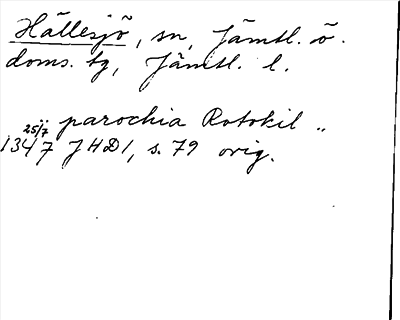 Hällesjö, sn, Jämtl. ö.
doms. tg, Jämtl. l.
parochia Rotokil ..
25/7 1347 JHD 1, s. 79 orig.